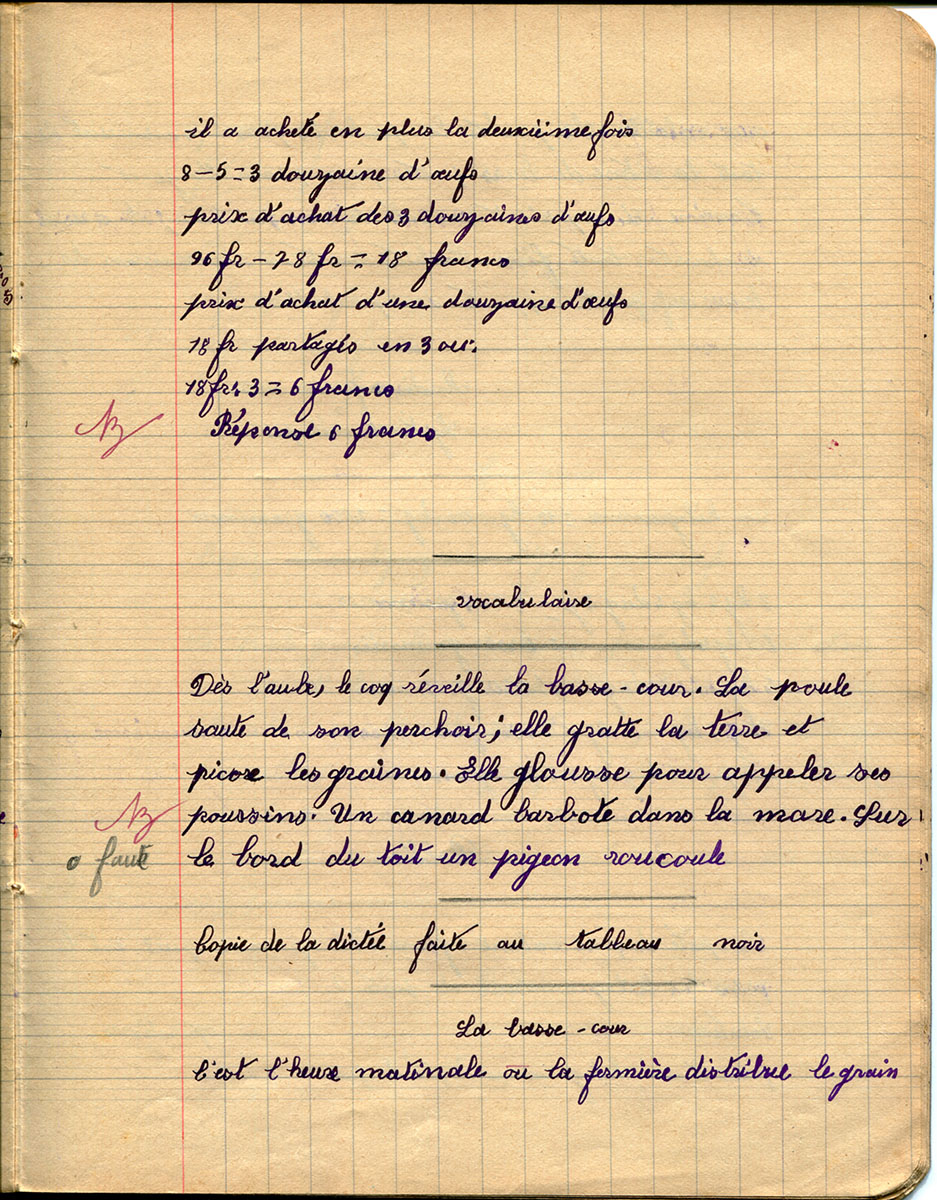 il a acheté en plus la deuxième fois
8 - 5 = 3 douzaine d'œufs
prix d'achat des 3 douzaines d'œufs
96 fr - 78 fr = 18 francs
prix d'achat d'une douzaine d'œufs
18 fr partagés en 3 ou:
18 fr : 3 = 6 francs
Réponse 6 francs
vocabulaire
Dès l'aube, le coq réveille la basse-cour. La poule
saute de son perchoir; elle gratte la terre et
picore les graines. Elle glousse pour appeler ses
poussins. Un canard barbote dans la mare. Sur
0 faute le bord du toit un pigeon roucoule
Copie de la dictée faite au tableau noir
La basse-cour
C'est l'heure matinale ou la fermière distribue le grain